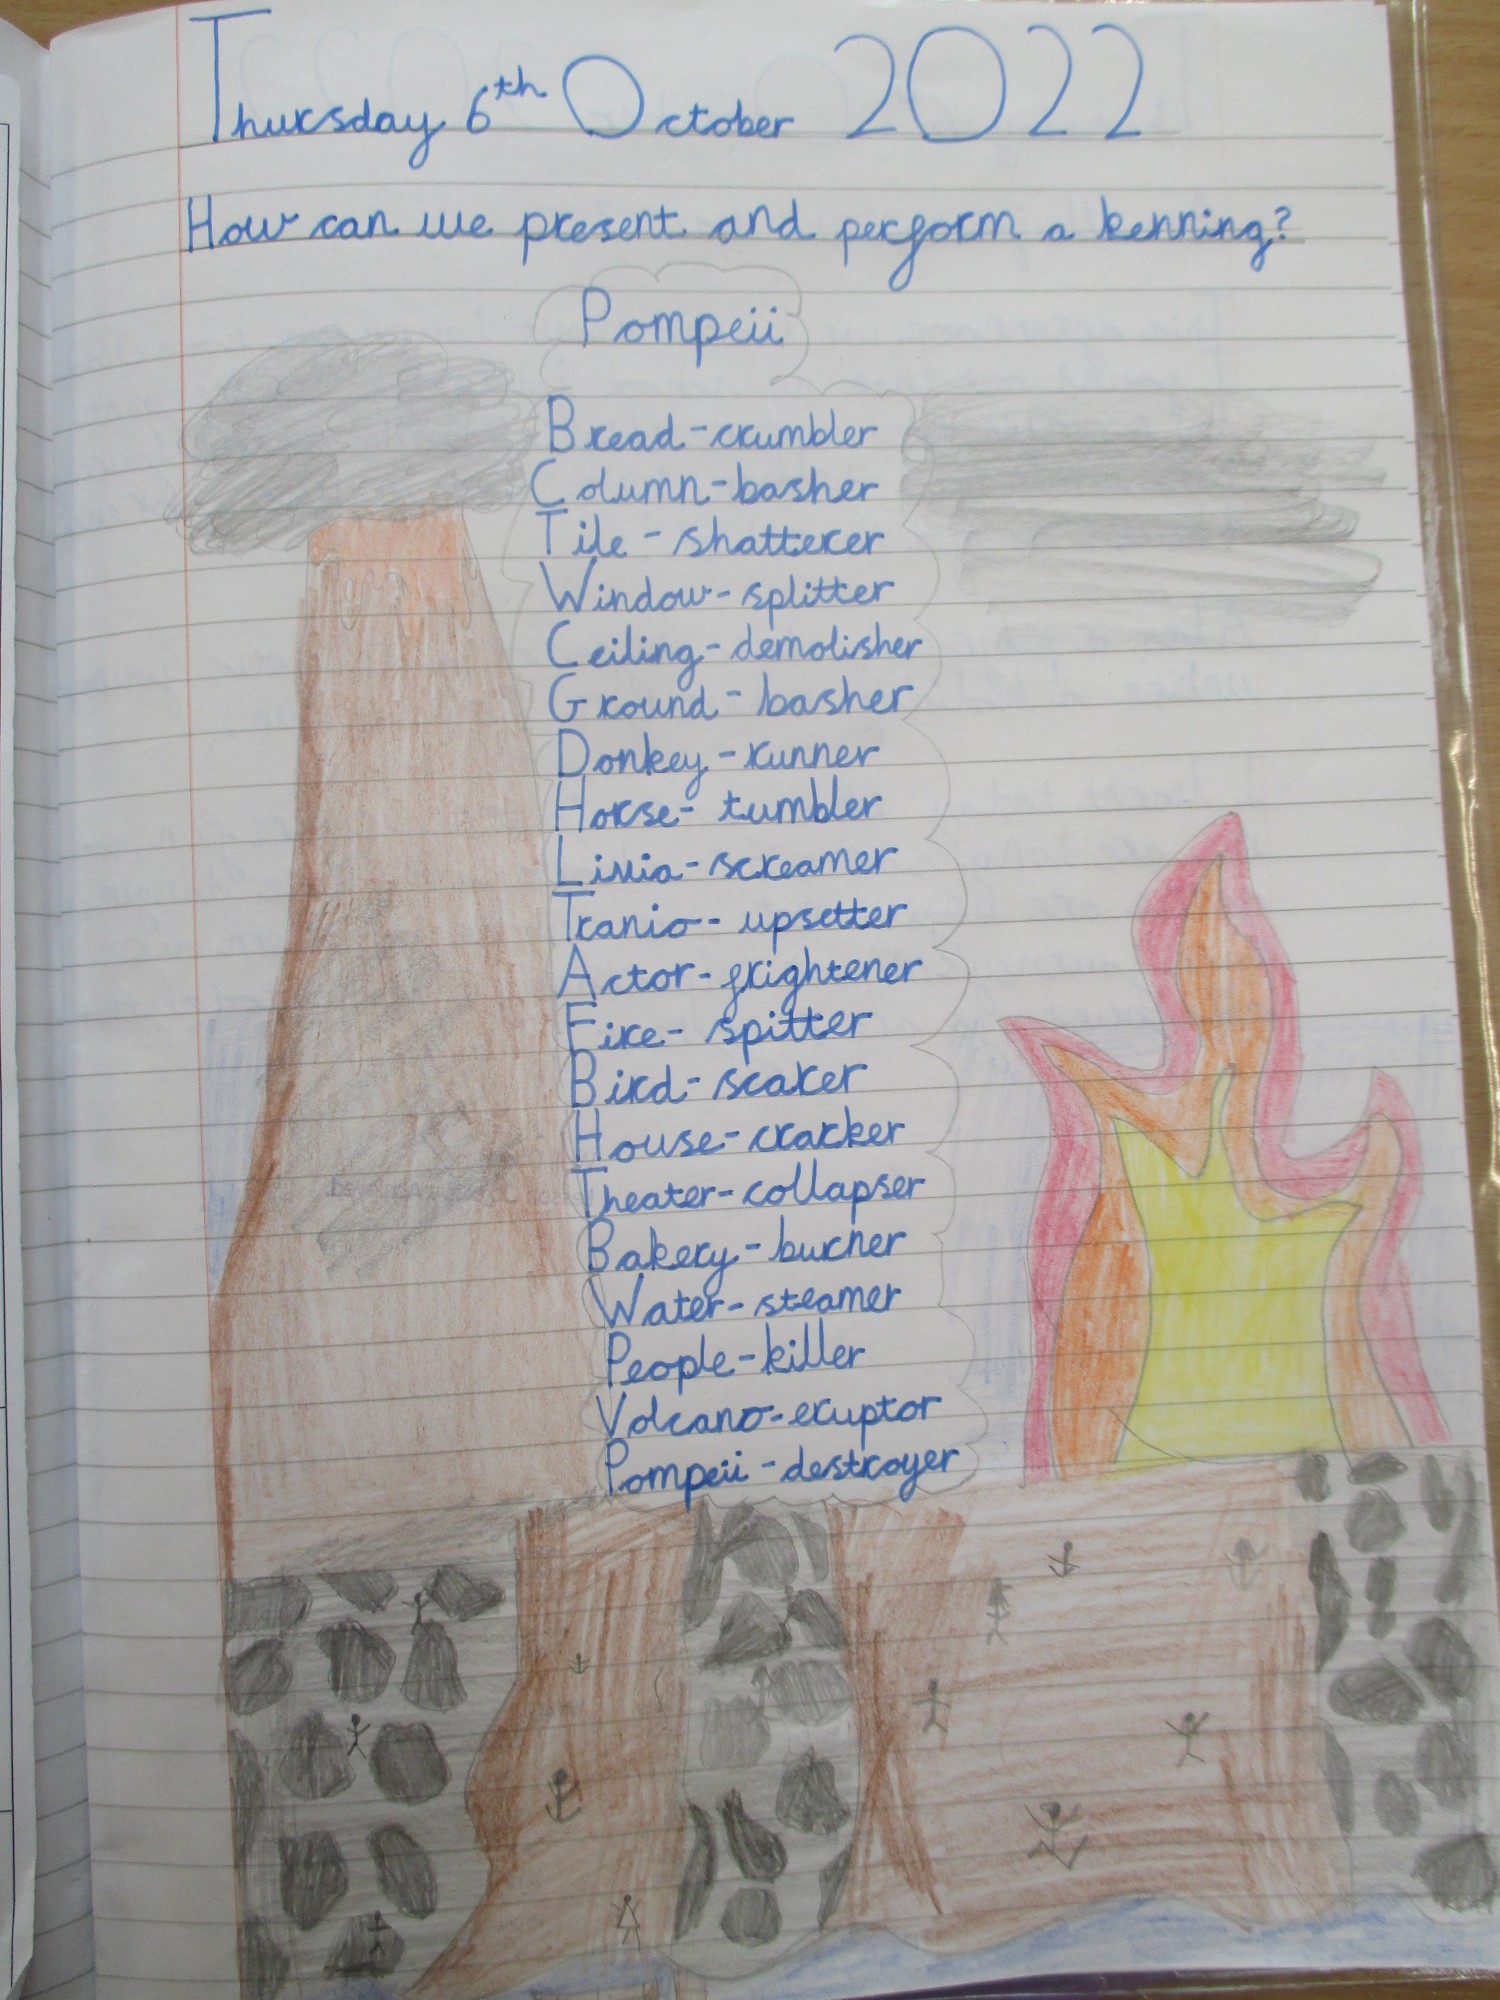 Thursday 6th October 2022
How can we present and perform a kenning?
Pompeii
Bread-crumbler
Column-basher
Tile-shatterer
Window-splitter
Ceiling-demolisher
Ground-basher
Donkey-runner
Horse-tumbler
Livia-screamer
Tranio-upsetter
Actor-frightener
Fire-spitter
Bird-scarer
House-cracker
Theater-collapser
Bakery-burner
Water-steamer
People-killer
Volcano-eruptor
Pompeii-destroyer